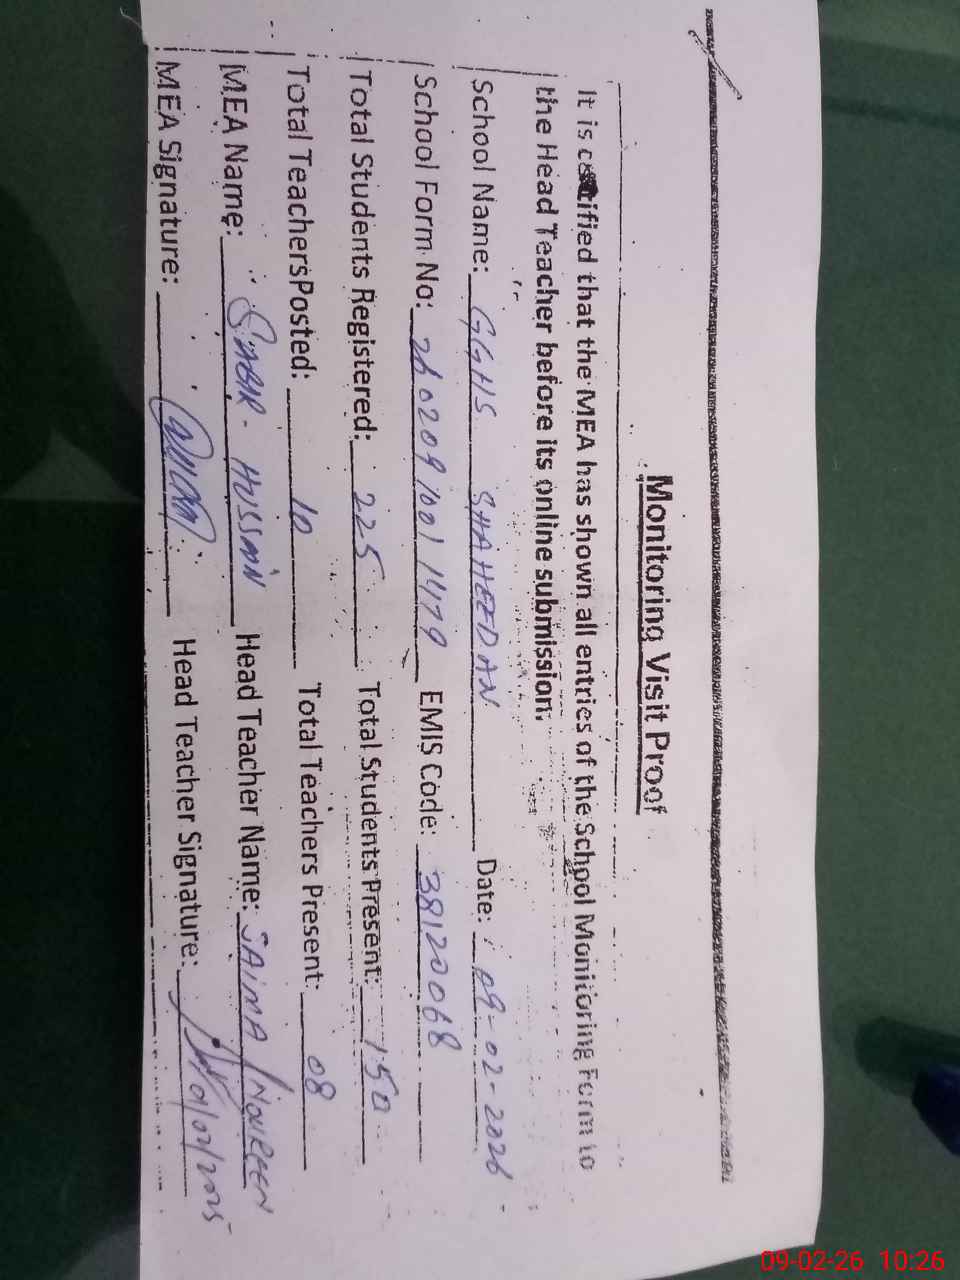 Monitoring Visit Proof
It is certified that the MEA has shown all entries of the School Monitoring Form to
the Head Teacher before its online submission.
School Name: GGHS SHAHEEDAN Date: 09-02-2026
School Form No: 2602091001 1479 EMIS Code: 38120068
Total Students Registered: 225 Total Students Present: 150
Total TeachersPosted: 10 Total Teachers Present: 08
MEA Name: SABIR - HUSSAIN Head Teacher Name: SAIMA NOUREEN
MEA Signature: Head Teacher Signature:
09-02-26 10:26